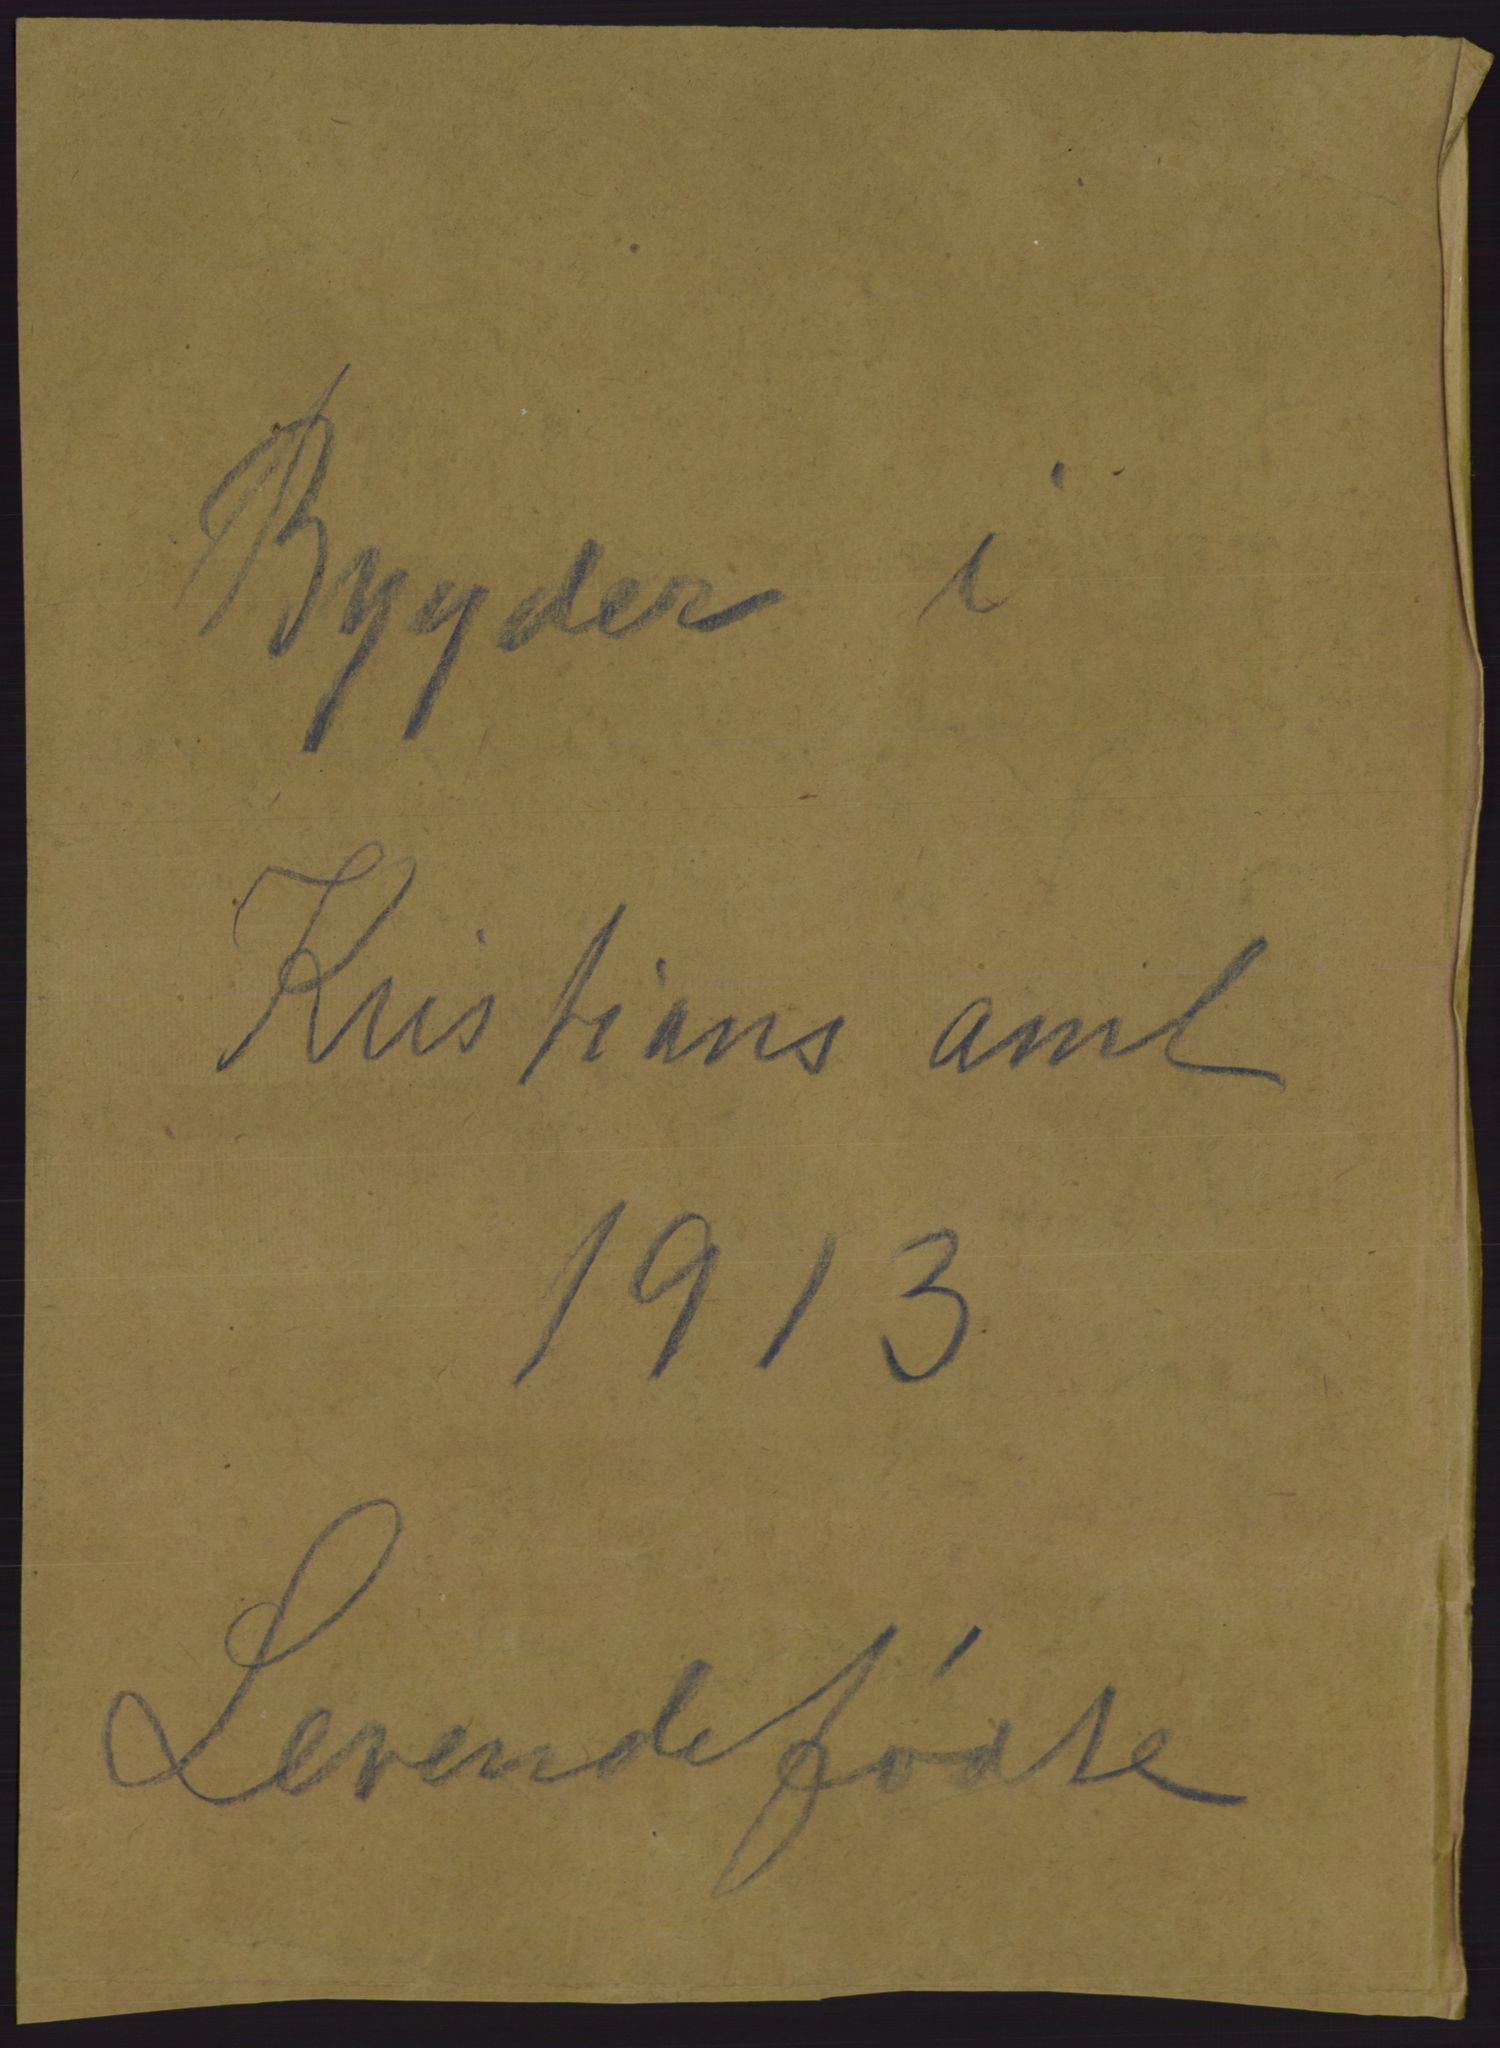 Bygder i
Kristians amt
1913
Levendefödte